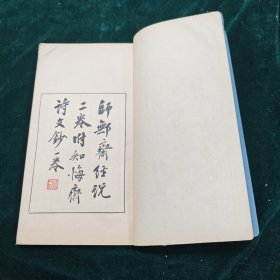 師鄭齋經說
二卷附知悔齋
詩文鈔一卷